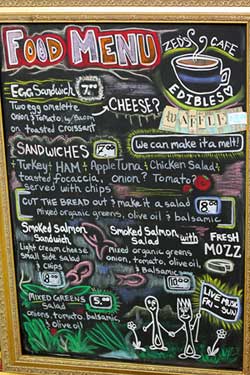 FOOD MENU
ZED'S CAFE
EDIBLES
WAFFLES
EGG Sandwich 7.00
CHEESE?
Two egg omelette
onion & Tomato, w/ Bacon
on toasted Croissant
SANDWICHES
We can make it a melt!
Turkey HAM Apple Tuna Chicken Salad
toasted focaccia, onion & Tomato?
served with chips
CUT THE BREAD OUT & make it a salad
Mixed organic greens, olive oil & balsamic
Smoked Salmon
Sandwich
Light cream cheese
small side salad
& chips
Smoked Salmon
Salad
Mixed organic greens
onion, tomato, olive oil,
& Balsamic
with
FRESH
MOZZ
MIXED GREENS
Salad
5.00
onions, tomato, balsamic,
& olive oil
LIVE MUSIC
FRI - SUN